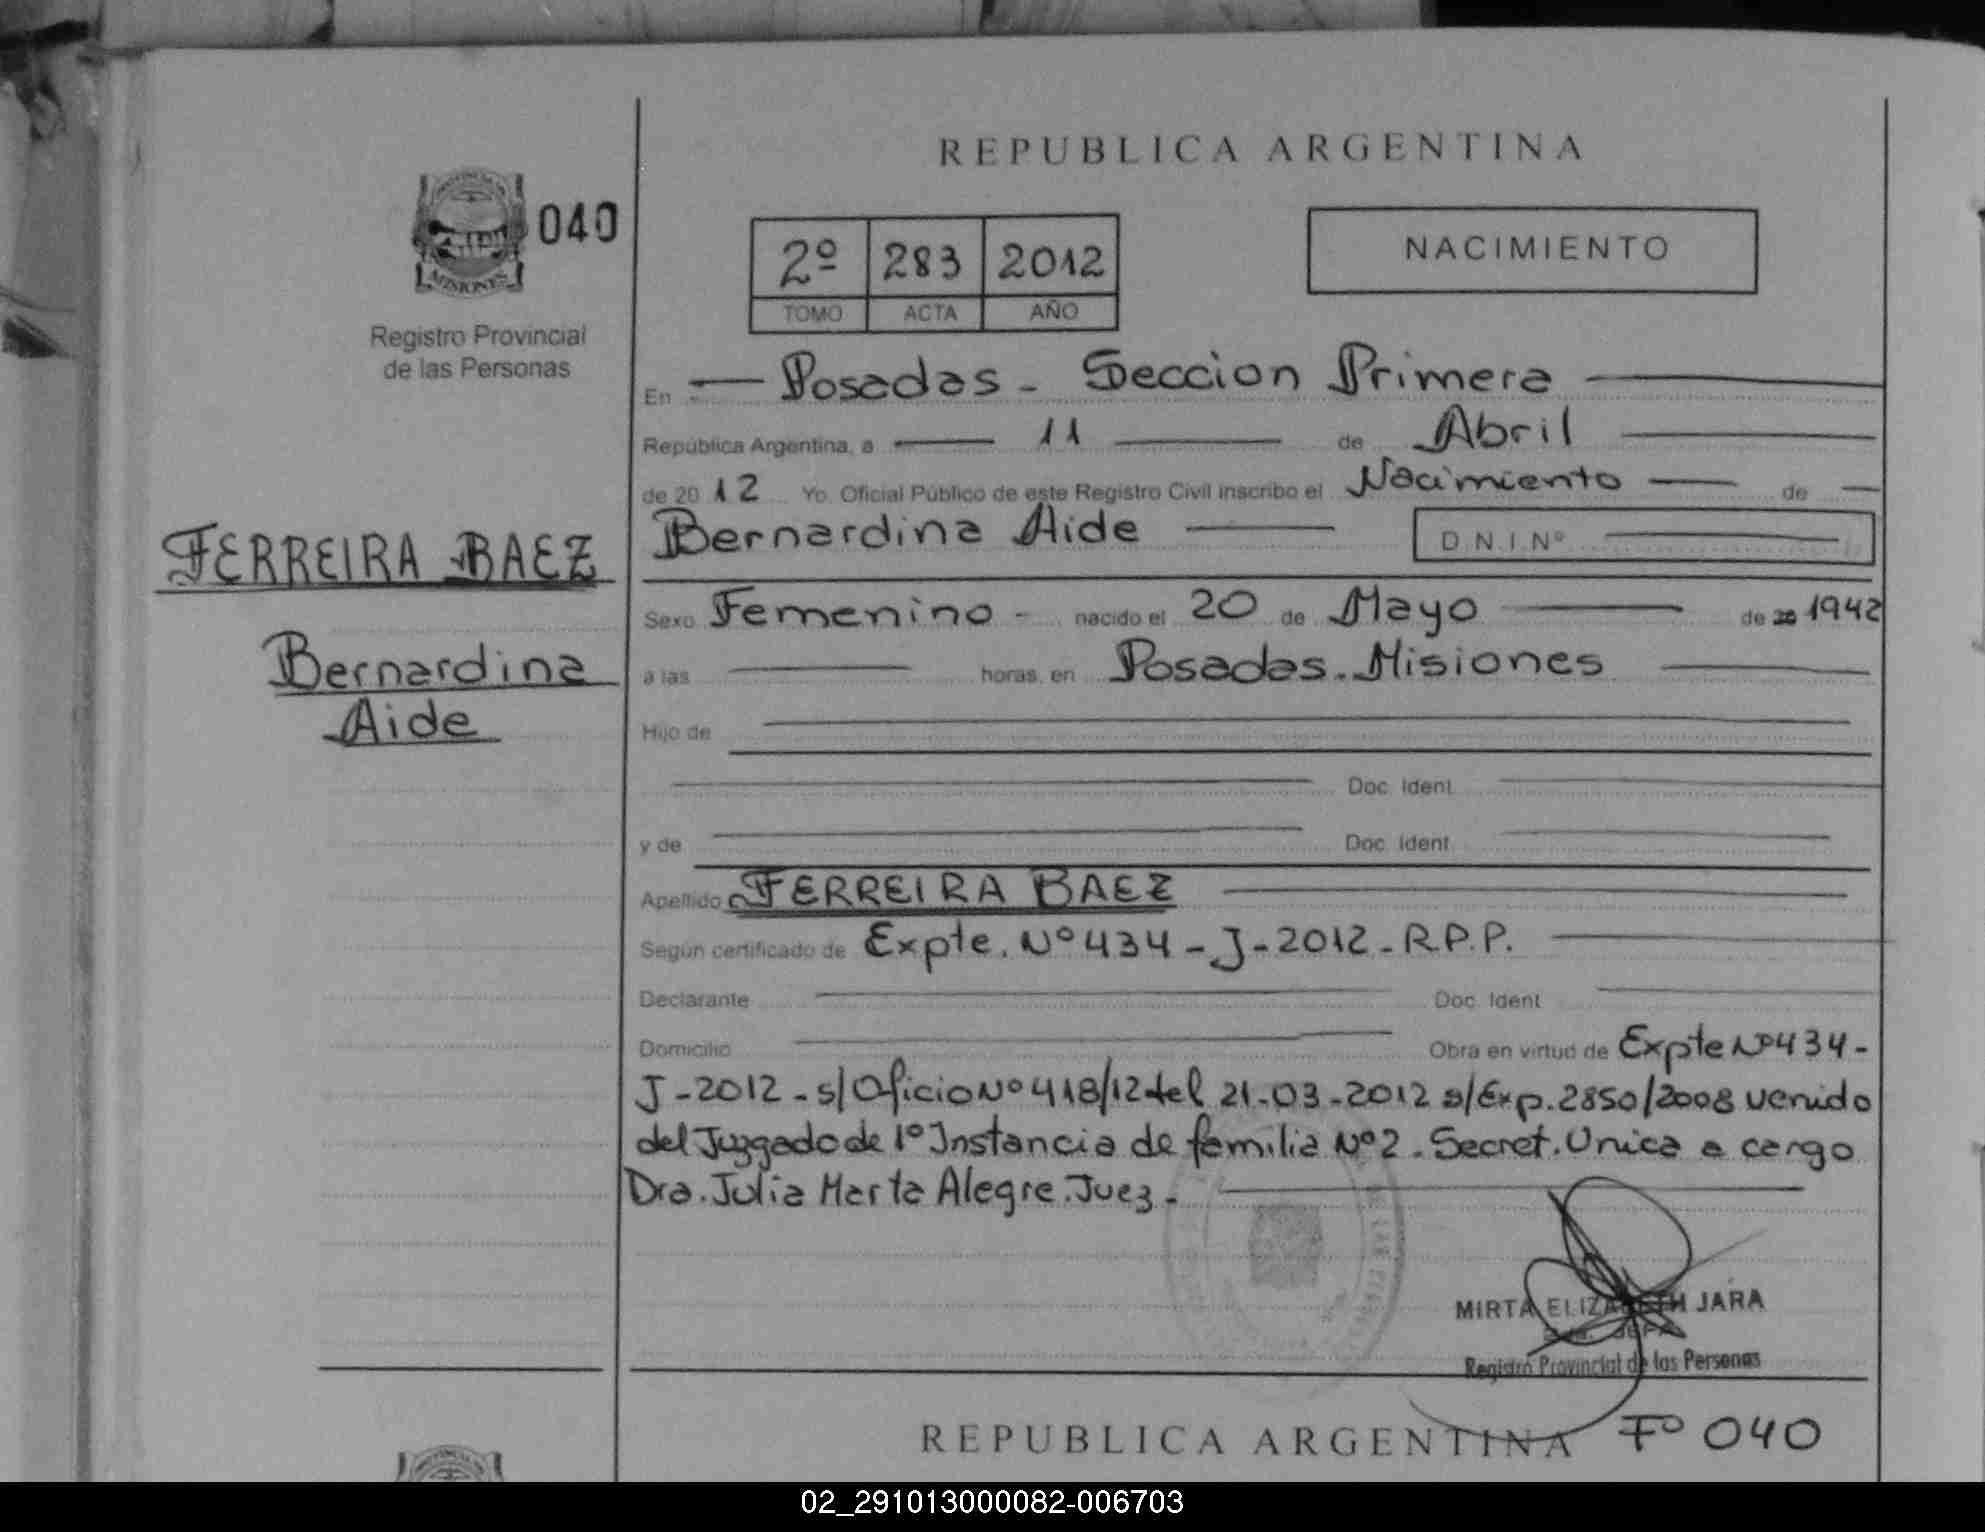 REPUBLICA ARGENTINA
MISIONES
040
Registro Provincial
de las Personas
2º 283 2012
TOMO ACTA AÑO
NACIMIENTO
En Posadas - Seccion Primera
República Argentina, a 11 de Abril
de 2012 Yo Oficial Público de este Registro Civil inscribo el Nacimiento de
Bernardina Aide D.N.I.Nº
FERREIRA BAEZ
Bernardina
Aide
Sexo Femenino - nacido el 20 de Mayo de 20 1942
a las horas, en Posadas. Misiones
Hijo de
Doc. Ident.
y de Doc. Ident.
Apellido FERREIRA BAEZ
Según certificado de Expte. Nº 434 - J - 2012 - R.P.P.
Declarante Doc. Ident.
Domicilio Obra en virtud de Expte Nº 434 -
J - 2012 - s/Oficio Nº 418/12 del 21-03-2012 s/Exp. 2850/2008 venido
del Juzgado de 1º Instancia de familia Nº 2. Secret. Unica a cargo
Dra. Julia Marta Alegre. Juez -
MIRTA ELIZABETH JARA
Registro Provincial de las Personas
REPUBLICA ARGENTINA Fº 040
02_291013000082-006703